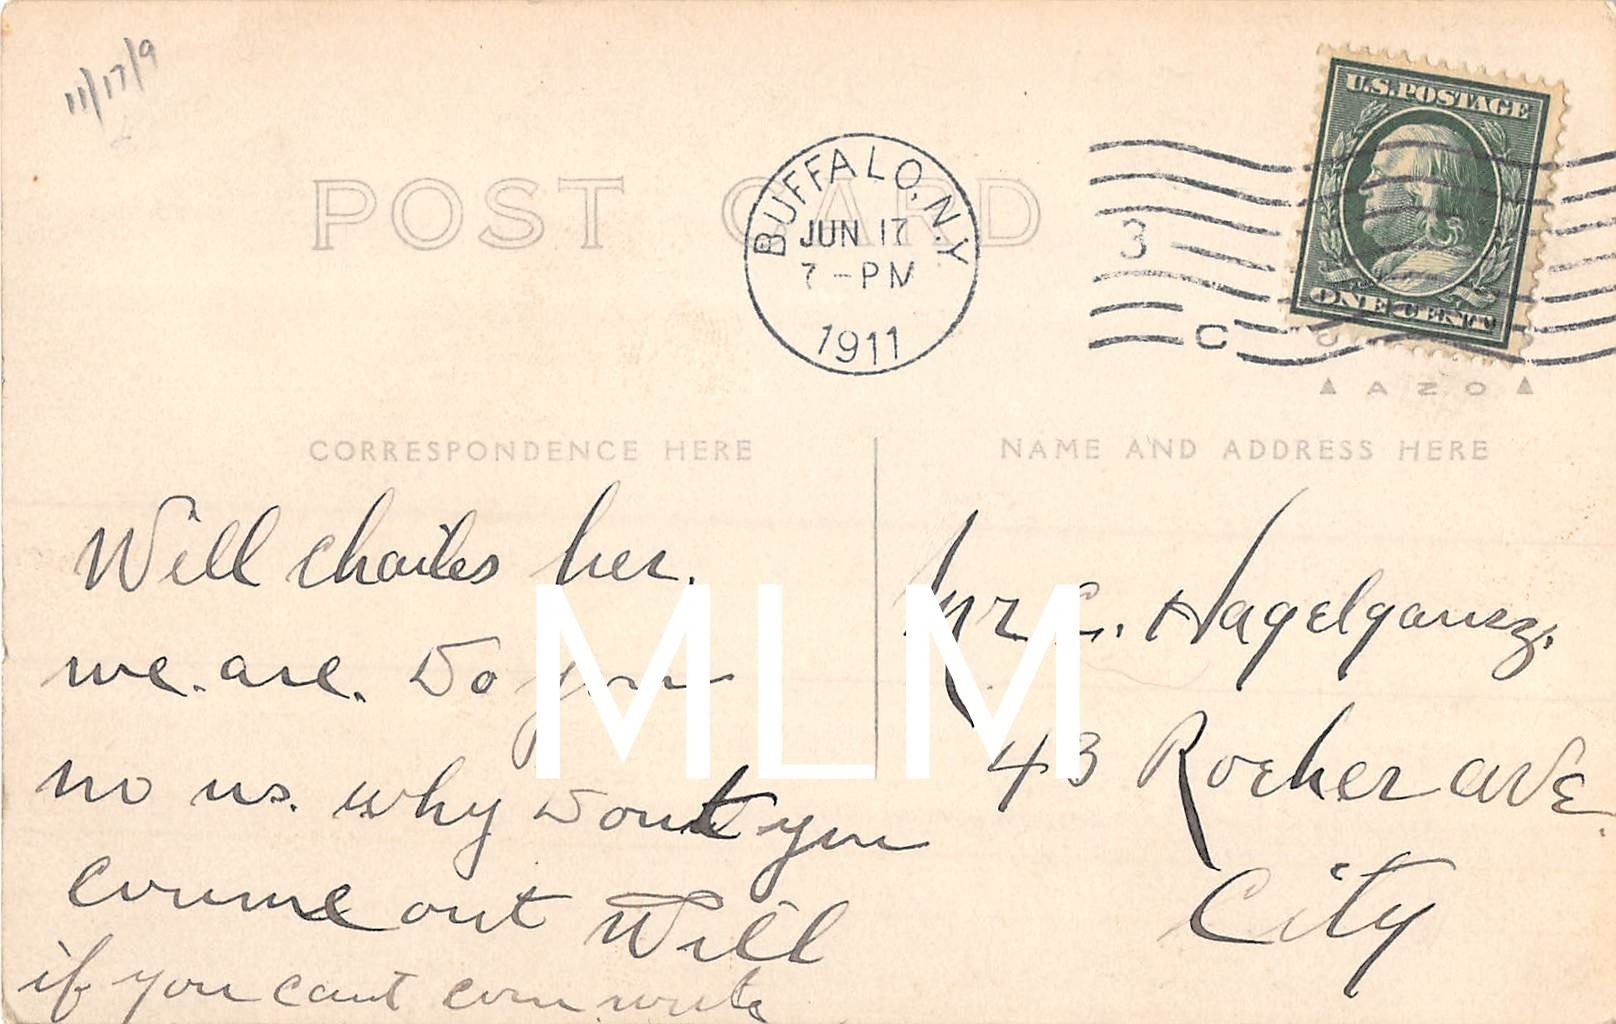 11/17/9
U.S. POSTAGE
ONE CENT
BUFFALO, N.Y.
JUN 17
7-PM
1911
3
C
POST CARD
AZO
CORRESPONDENCE HERE
NAME AND ADDRESS HERE
Will Charles her.
we. are. Do you
no us. why Dont you
coume out Will
if you cant com write
Mr C. Hagelganz.
43 Roeher ave.
City
MLM